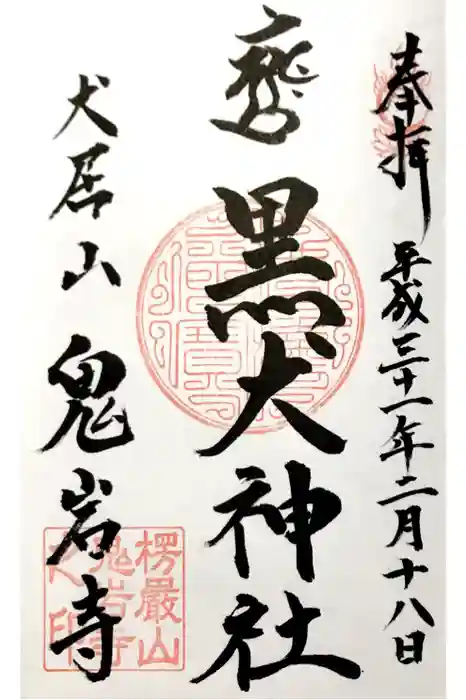 奉拝 平成三十一年二月十八日
黒犬神社
犬居山 鬼岩寺
楞嚴山
鬼岩寺
之印